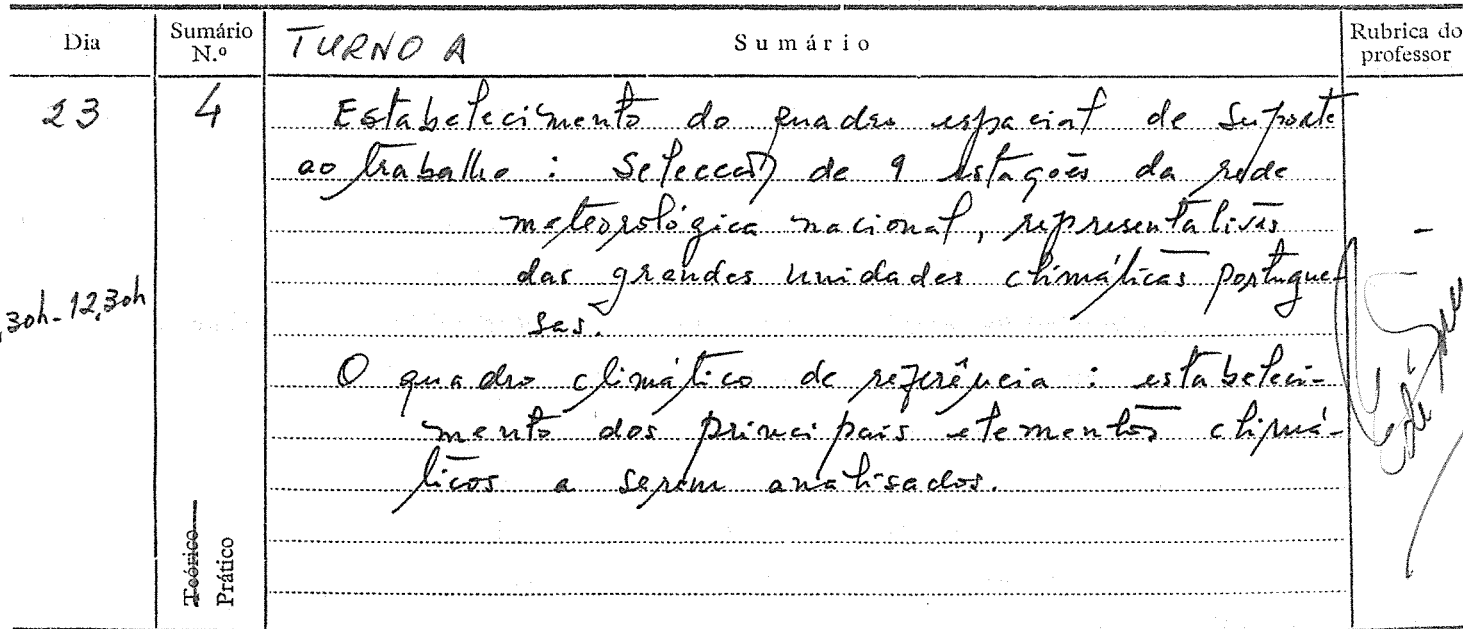 Dia
Sumário N.º
TURNO A
Sumário
Rubrica do professor
23
4
Estabelecimento do quadro espacial de suporte
ao trabalho : Selecção de 9 estações da rede
meteorológica nacional, representativas
das grandes unidades climáticas portugue
sas.
30h-12,30h
O quadro climático de referência : estabeleci-
mento dos principais elementos climá-
ticos a serem analisados.
Teórico
Prático